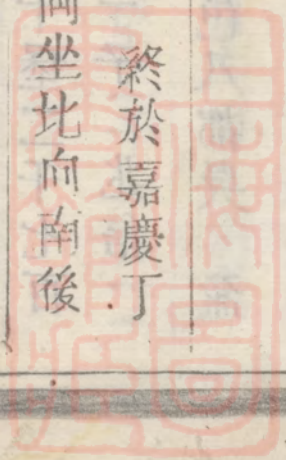 終於嘉慶丁
坐北向南後